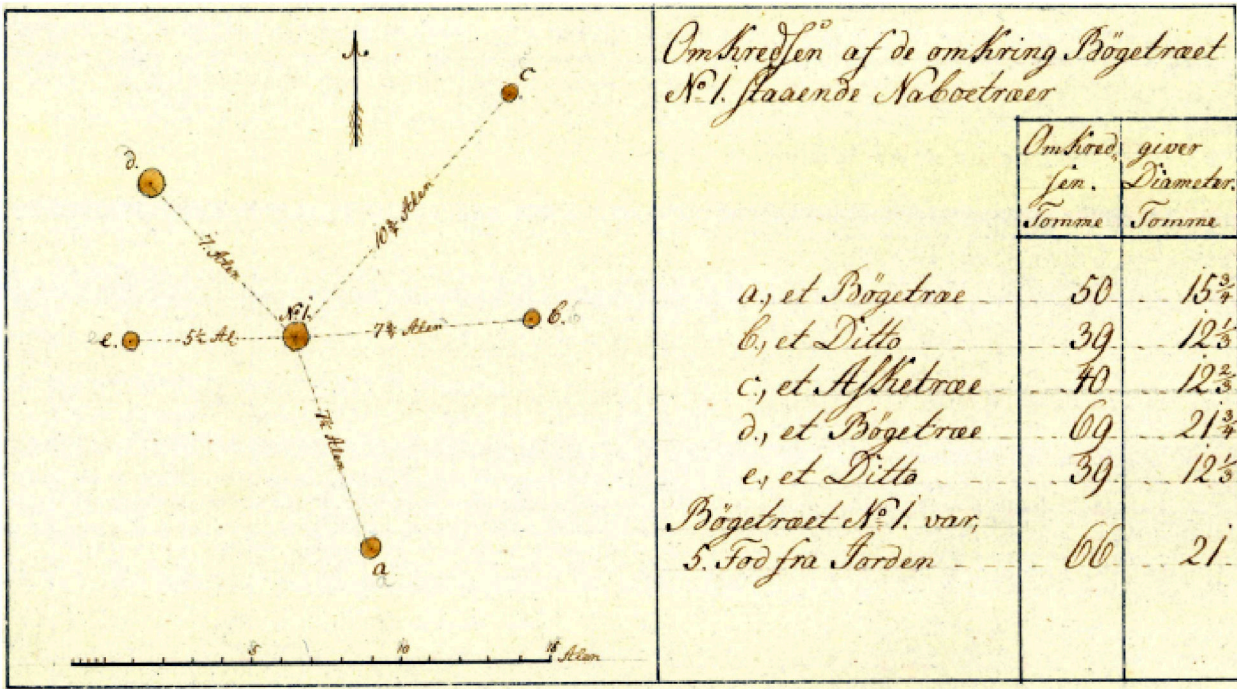 c
d.
10 3/4 Alen
7 Alen
No 1.
e. 5 1/2 Al.
7 3/4 Alen b.
Alen
a
5 10 15 Alen
Omkredsen af de omkring Bögetræet
No 1. staaende Naboetræer
Omkred, giver
sen. Diameter.
Tomme Tomme
a, et Bögetræ 50 15 3/4
b, et Ditto 39 12 1/3
c, et Asketræe 40 12 2/3
d, et Bögetræe 69 21 3/4
e, et Ditto 39 12 1/3
Bögetræet No 1. var,
5. Fod fra Jorden 66 21